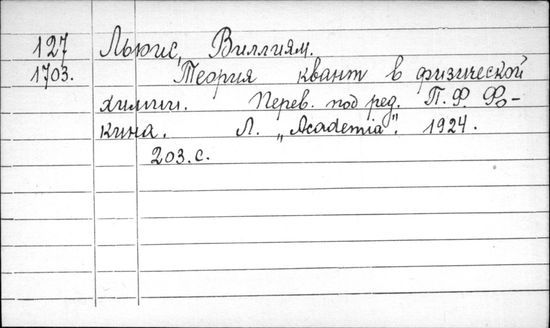 127 Льюис, Виллиям.
1703. Теория квант в физической
химии. Перев. под ред. П. Ф. Фо-
кина. Л. „Academia". 1924.
203.с.